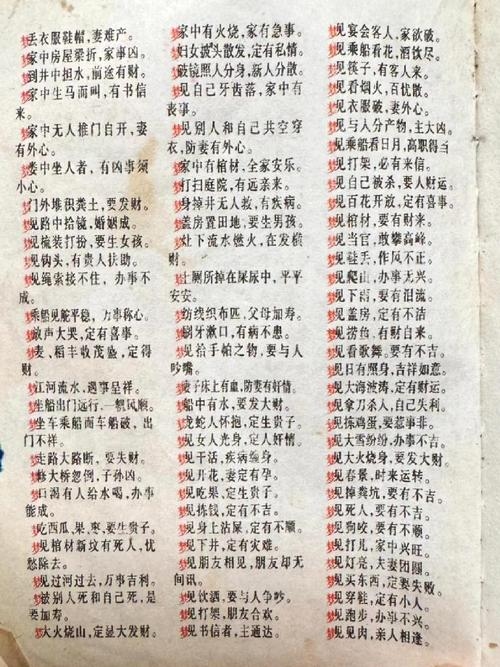 梦丢衣服鞋帽，妻难产。
梦家中房屋梁折，家事凶。
梦到井中担水，前途有财。
梦家中生马而叫，有书信
来。
梦家中无人推门自开，妻
有外心。
梦娄中坐人者，有凶事须
小心。
梦门外堆积粪土，要发财。
梦见路中拾镜，婚姻成。
梦见梳装打扮，要生女孩。
梦见钩头，有贵人扶助。
梦见绳索接不住，办事不
成。
梦乘船见舵平稳，万事称心。
梦放声大哭，定有喜事。
梦麦、稻丰收茂盛，定得
财。
梦江河流水，遇事呈祥。
梦坐船出门远行，一帆风顺。
梦坐车乘船而车船破，出
门不祥。
梦走路大路断，要失财。
梦修大桥忽倒，子孙凶。
梦口渴有人给水喝，办事
能成。
梦吃西瓜，果，枣，要生贵子。
梦见棺材新坟有死人，忧
愁除去。
梦见过河过去，万事吉利。
梦被别人死和自己死，是
要加寿。
梦大火烧山，定显大发财。
梦家中有火烧，家有急事。
梦妇女披头散发，定有私情。
梦破镜照人分身，新人分散。
梦见自己牙齿落，家中有
丧事。
梦见别人和自己共空穿
衣，防妻有外心。
梦家中有棺材，全家安乐。
梦打扫庭院，有远亲来。
梦身掉井无人救，有疾病。
梦盖房置田地，要生男孩。
梦灶下流水燃火，在发横
财。
梦上厕所掉在屎尿中，平平
安安。
梦纺线织布匹，父母加寿。
梦刷牙漱口，有病不患。
梦见拾手帕之物，要与人
吵嘴。
梦妻子床上有血，防妻有奸情。
梦船中有水，要发大财。
梦龙蛇人怀抱，定生贵子。
梦见女人光身，定人奸情。
梦见干活，疾病缠身。
梦见开花，妻定有孕。
梦见吃果，定生贵子。
梦见拣钱，定有不吉。
梦见身上沾屎，定有不顺。
梦见下井，定有灾难。
梦见朋友相见，朋友却无
间讯。
梦见饮酒，要与人争吵。
梦见打架，朋友合欢。
梦见书信者，主通达。
梦见宴会客人，家欲破。
梦见乘船看花，酒饮尽。
梦见筷子，有客人来。
梦见看烟火，百忧散。
梦见衣服破，妻外心。
梦见与人分产物，主大凶。
梦见乘船看日月，高职得当
梦见打架，必有来信。
梦见自己被杀，要人财运。
梦见百花开放，定有喜事。
梦见棺材，要有财来。
梦见当官，敢攀高峰。
梦见鞋丢，作风不正。
梦见爬山，办事无兴。
梦见下雨，要有泪流。
梦见盖房，定有不洁
梦见捞鱼，有财自来。
梦见看歌舞。要有不吉。
梦见日有照身，吉祥如意。
梦见大海波涛，定有财运。
梦见拿刀杀人，自己失利。
梦见拣鸡蛋，要惹事非。
梦见大雪纷纷，办事不吉。
梦见大火烧身，要发大财。
梦见春景，时来运转。
梦见掉粪坑，要有不吉。
梦见死人，要有不吉。
梦见狗咬，要有不顺。
梦见打儿，家中兴旺。
梦见灯亮，夫妻团圆。
梦见买东西，定要失败。
梦见穿鞋，定有小人。
梦见跑步，办事不兴。
梦见见肉，亲人相逢。